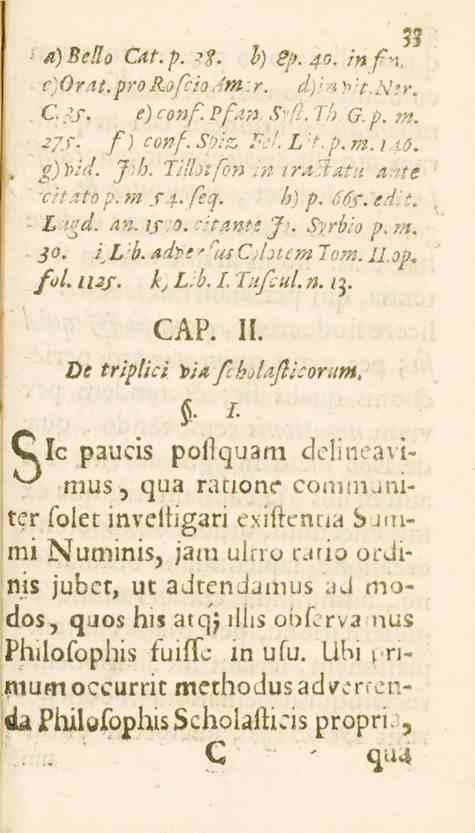 33
a) Bello Cat. p. 38. b) Ep. 40. in fin.
c) Orat. pro Roſcio Amer. d) in vit. Ner.
C. 35. e) conf. Pfan. Syſt. Th. G. p. m.
275. f) conf. Spiz. Fel. Lit. p. m. 146.
g) vid. Joh. Tillotſon in tractatu ante
citato p. m 54. ſeq. h) p. 665. edit.
Lugd. an. citante Jo. Syrbio p. m.
30. i) Lib. adverſus Colotem Tom. II. op.
fol. 1125. k) Lib. I. Tuſcul. n. 13.
CAP. II.
De triplici via ſcholaſticorum.
§. I.
SIc paucis poſtquam delineavi-
mus, qua ratione communi-
ter ſolet inveſtigari exiſtentia Sum-
mi Numinis, jam ultro ratio ordi-
nis jubet, ut adtendamus ad mo-
dos, quos his atq; illis obſervamus
Philoſophis fuiſſe in uſu. Ubi pri-
mum occurrit methodus adverten-
da Philoſophis Scholaſticis propria,
C qua